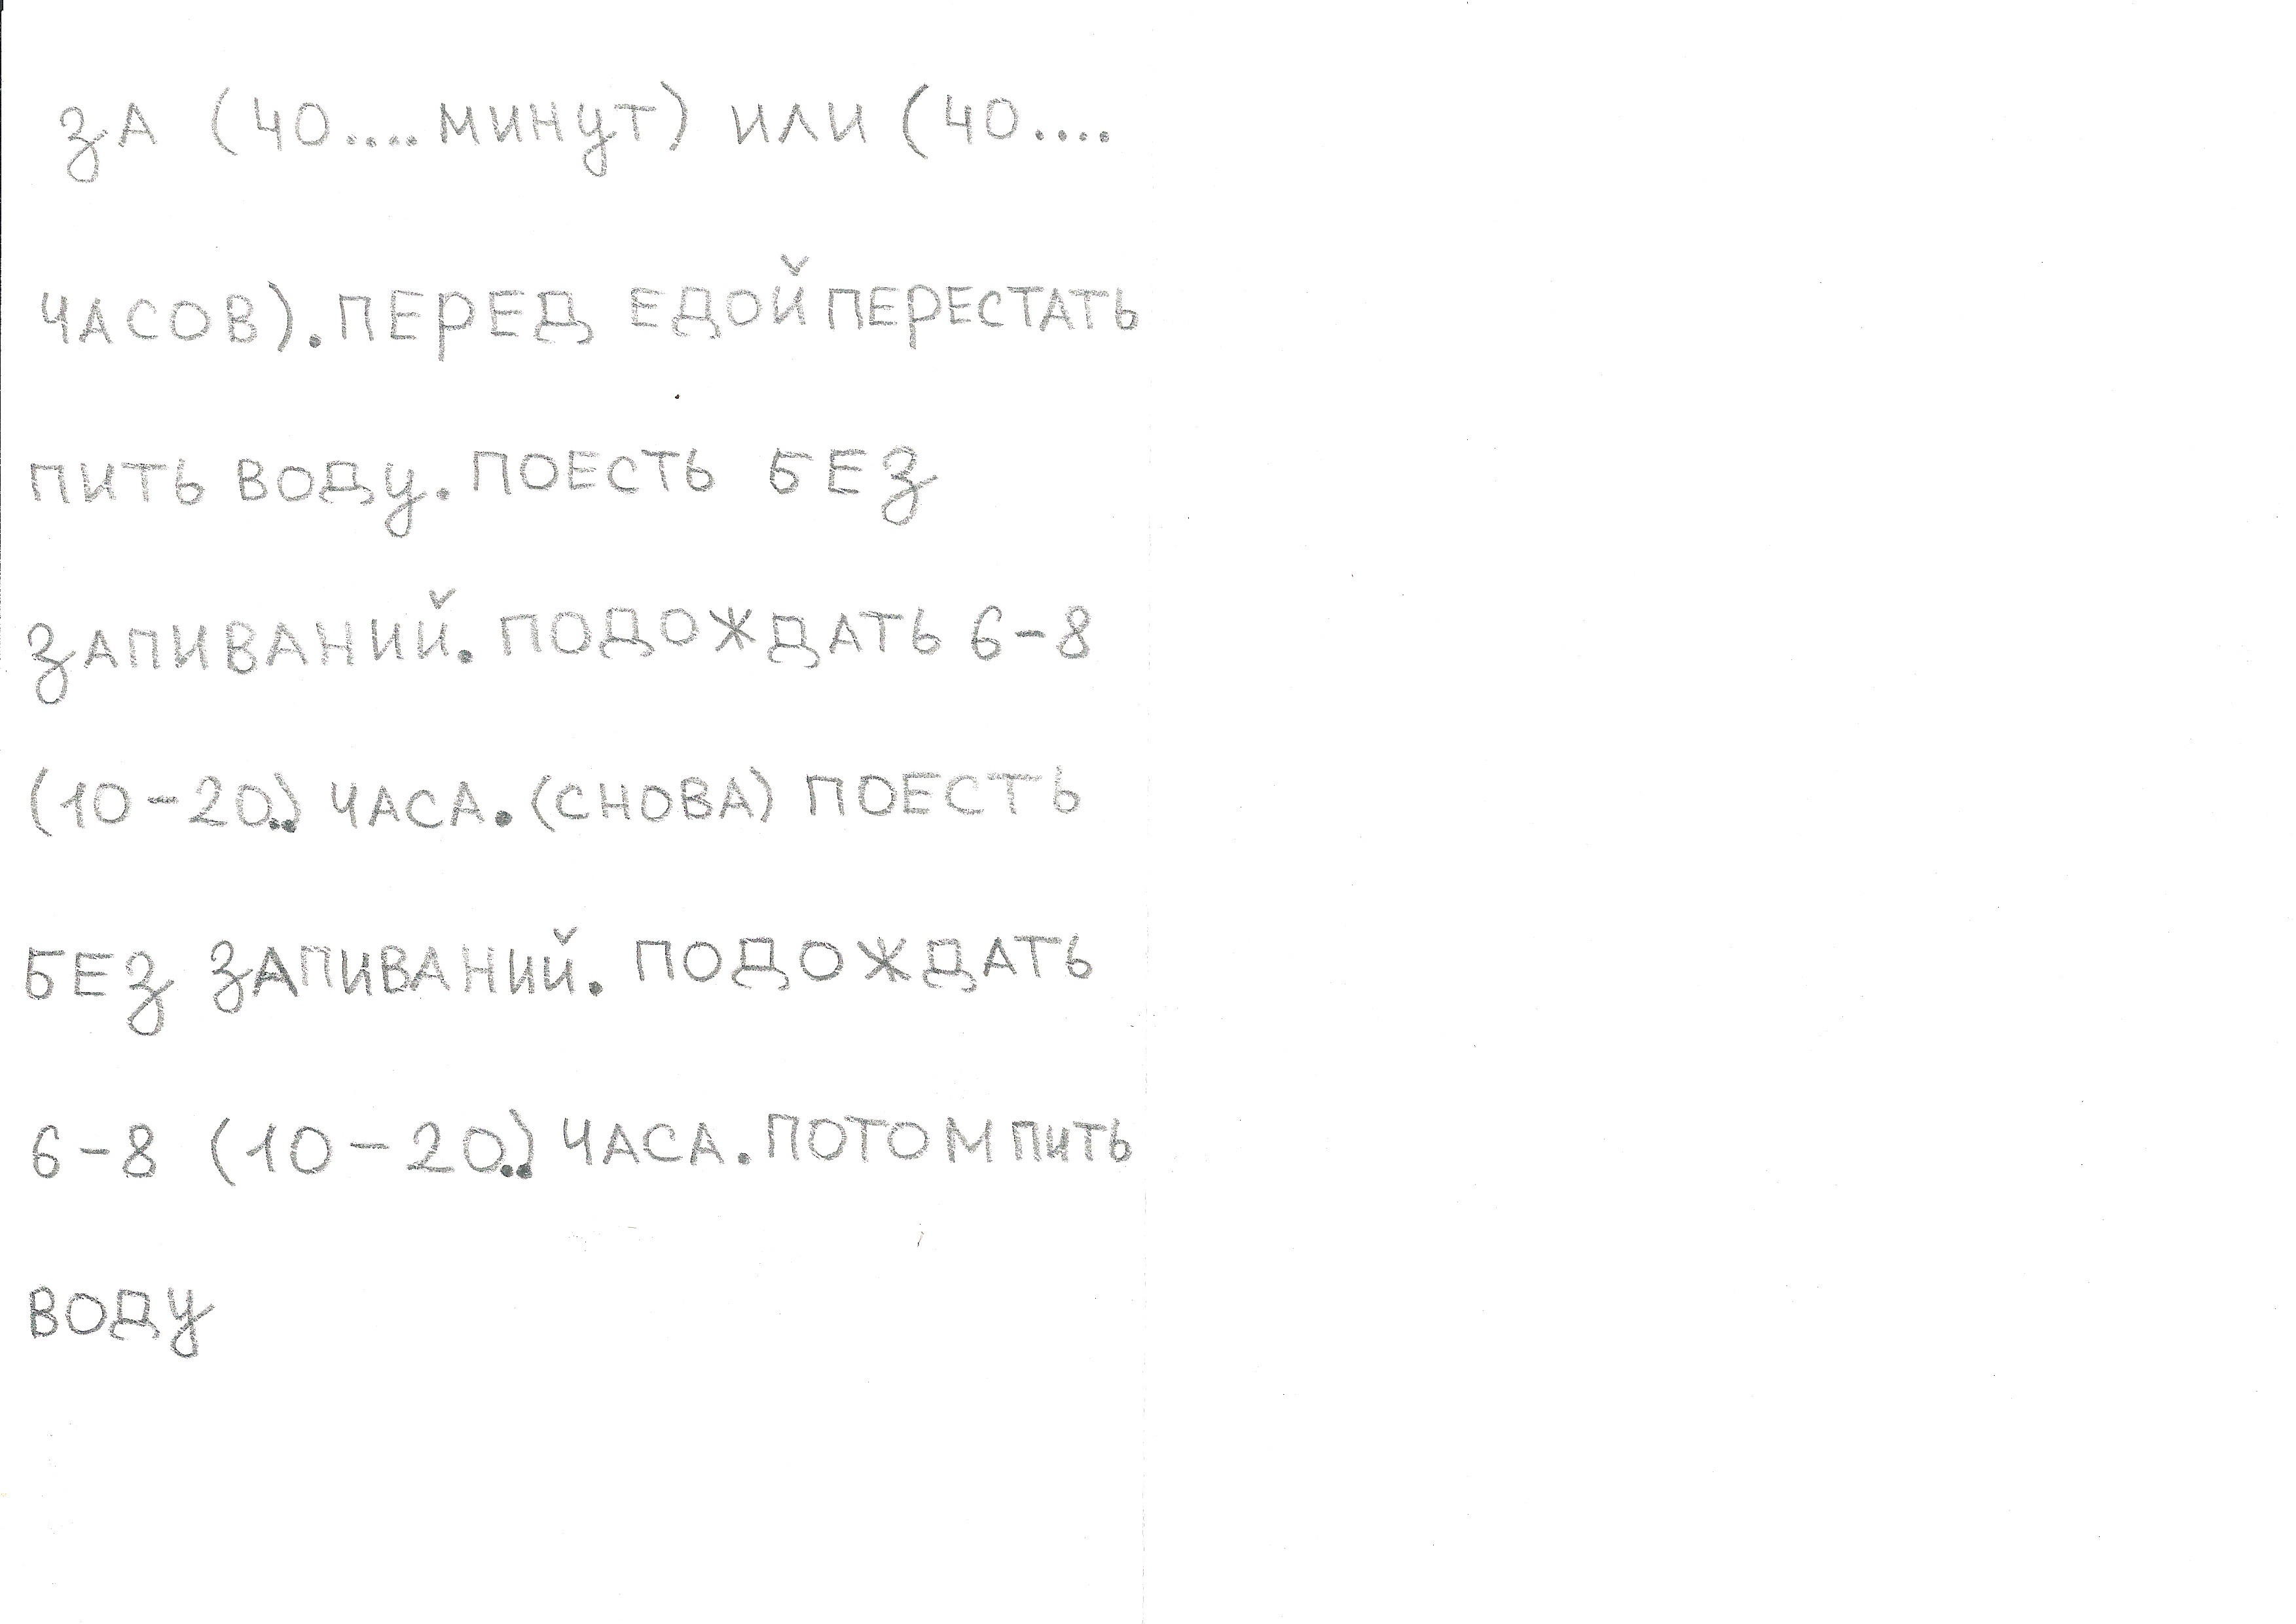 ЗА (40....МИНУТ) ИЛИ (40....
ЧАСОВ). ПЕРЕД ЕДОЙ ПЕРЕСТАТЬ
ПИТЬ ВОДУ. ПОЕСТЬ БЕЗ
ЗАПИВАНИЙ. ПОДОЖДАТЬ 6-8
(10-20..) ЧАСА. (СНОВА) ПОЕСТЬ
БЕЗ ЗАПИВАНИЙ. ПОДОЖДАТЬ
6-8 (10-20..) ЧАСА. ПОТОМ ПИТЬ
ВОДУ